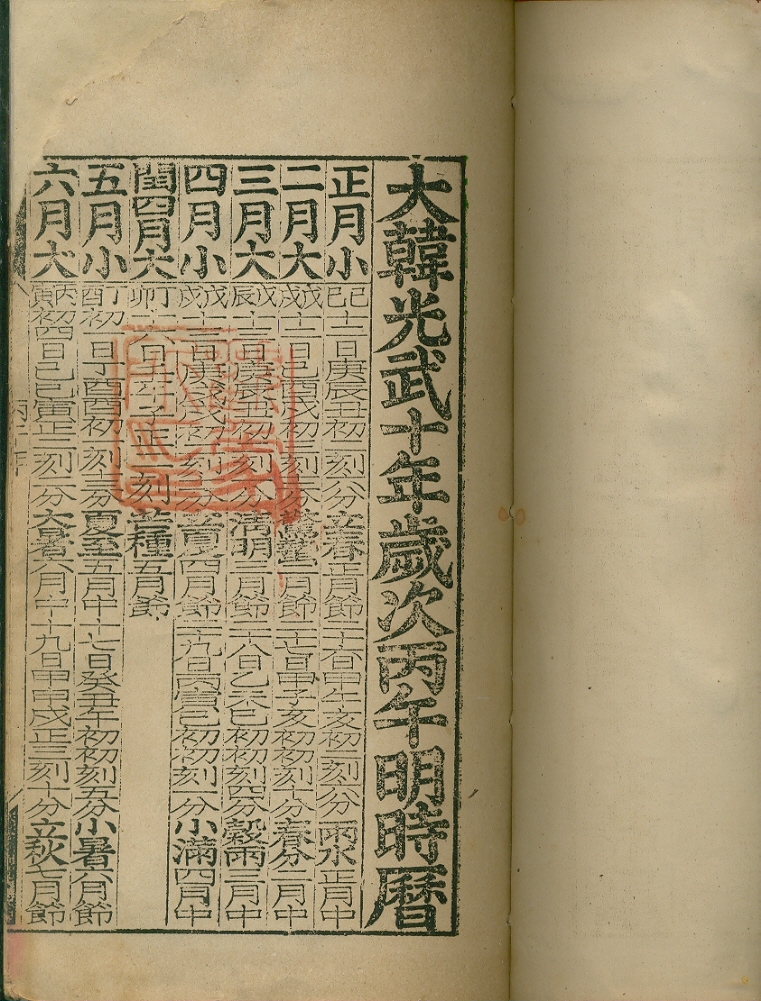 大韓光武十年歲次丙午明時曆
正月小己巳十二日庚辰丑初二刻六分立春正月節二十六日甲午亥初二刻六分雨水正月中
二月大戊戌十二日己酉戌初三刻分驚蟄二月節二十七日甲子亥初初刻十分春分二月中
三月大戊辰十三日庚辰丑初刻分淸明三月節二十八日乙未巳初初刻四分穀雨三月中
四月小戊戌十三日庚戌戌初刻分立夏四月節二十九日丙寅巳初初刻一分小滿四月中
閏四月大丁卯十六日壬午子正一刻芒種五月節
五月小丁酉初一日丁酉酉初刻分夏至五月中十七日癸丑午初初刻五分小暑六月節
六月大丙寅初四日己巳寅正二刻一分大暑六月中十九日甲申戌正三刻十分立秋七月節
丙午年